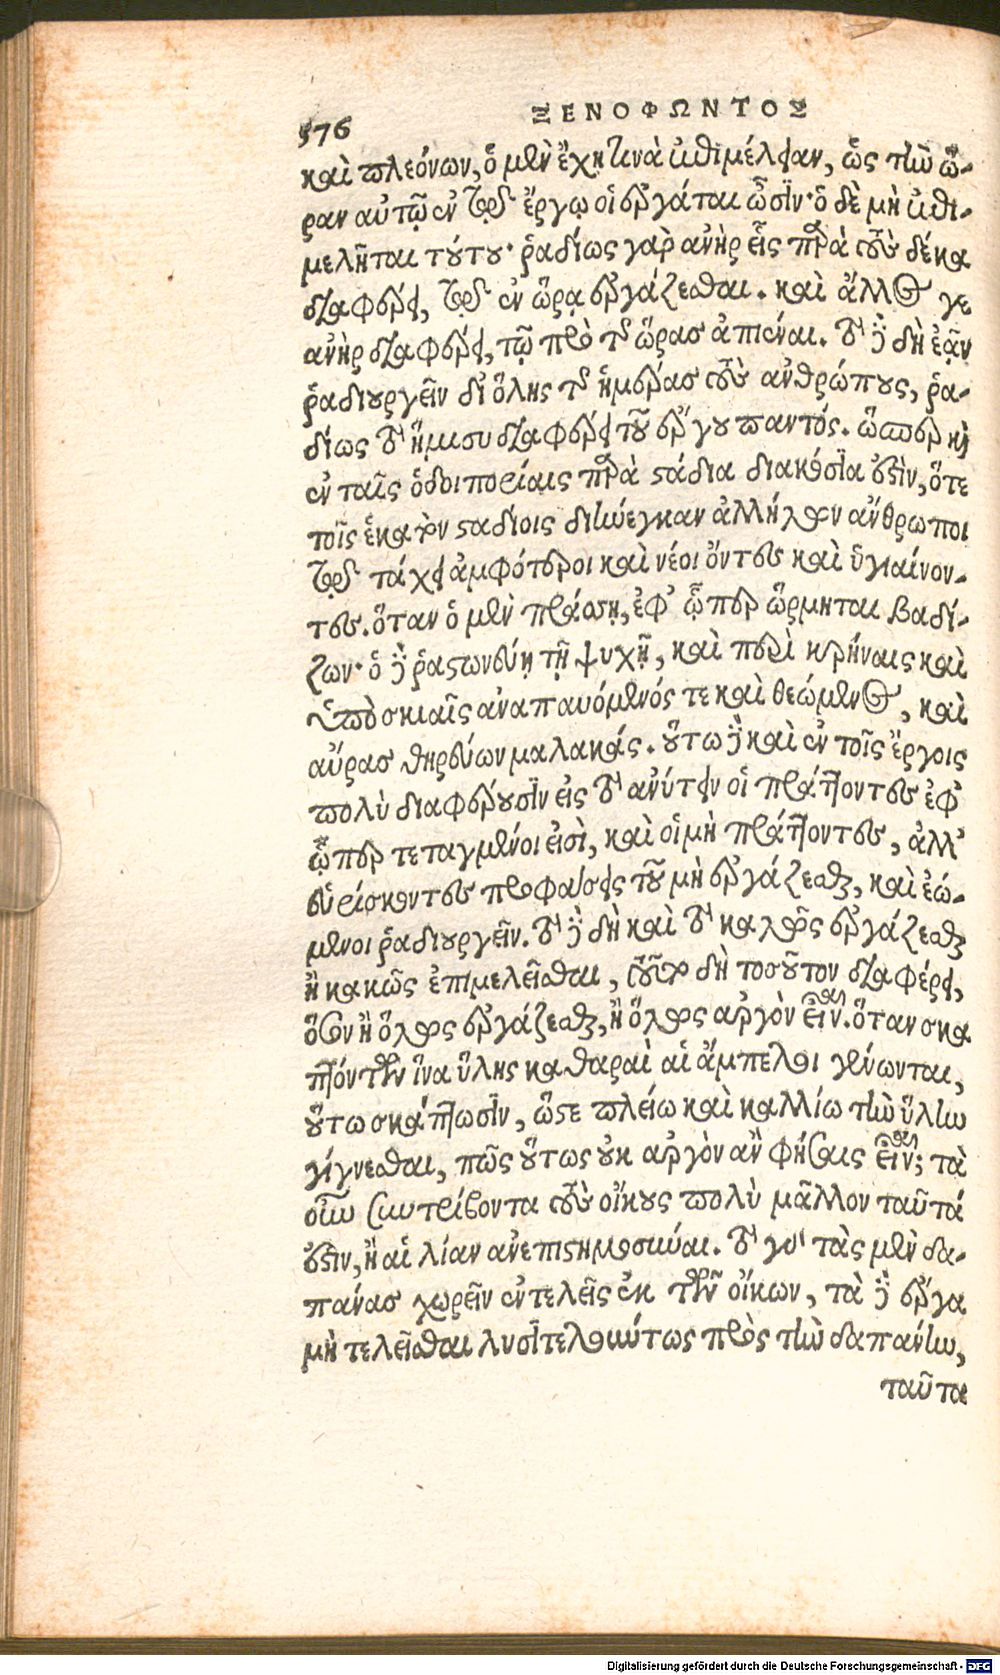 576 ΞΕΝΟΦΩΝΤΟΣ
καὶ πλεόνων, ὁ μὲν ἔχῃ τινὰ ἐπιμέλειαν, ὡς τὴν ὥ-
ραν αὐτῷ ἐν τῷ ἔργῳ οἱ ἐργάται ὦσιν· ὁ δὲ μὴ ἐπι-
μελῆται τούτου· ῥαδίως γὰρ ἀνὴρ εἷς παρὰ τοὺς δέκα
διαφέρει, τῷ ἐν ὥρᾳ ἐργάζεσθαι. καὶ ἄλλος γε
ἀνὴρ διαφέρει, τῷ πρὸ τῆς ὥρας ἀπιέναι. τὸ δὲ δὴ ἐᾷν
ῥαδιουργεῖν δι' ὅλης τῆς ἡμέρας τοὺς ἀνθρώπους, ῥα-
δίως τὸ ἥμισυ διαφέρει τοῦ ἔργου παντός. ὥσπερ καὶ
ἐν ταῖς ὁδοιπορίαις παρὰ στάδια διακόσια ἐστὶν, ὅτε
τοῖς ἑκατὸν σταδίοις διήνεγκαν ἀλλήλων ἄνθρωποι
τῷ τάχει ἀμφότεροι καὶ νέοι ὄντες καὶ ὑγιαίνον-
τες. ὅταν ὁ μὲν πράσσῃ, ἐφ' ᾧπερ ὥρμηται βαδί-
ζων· ὁ δὲ ῥᾳστωνεύῃ τῇ ψυχῇ, καὶ περὶ κρήναις καὶ
ὑπὸ σκιαῖς ἀναπαυόμενός τε καὶ θεώμενος, καὶ
αὔρας θηρεύων μαλακάς. οὕτω δὲ καὶ ἐν τοῖς ἔργοις
πολὺ διαφέρουσιν εἰς τὸ ἀνύτειν οἱ πράττοντες ἐφ'
ᾧπερ τεταγμένοι εἰσὶ, καὶ οἱ μὴ πράττοντες, ἀλλ'
εὑρίσκοντες προφάσεις τοῦ μὴ ἐργάζεσθαι, καὶ ἐώ-
μενοι ῥαδιουργεῖν. τὸ δὲ δὴ καὶ τὸ καλῶς ἐργάζεσθαι
ἢ κακῶς ἐπιμελεῖσθαι, τοῦτο δὴ τοσοῦτον διαφέρει,
ὅσον ἢ ὅλως ἐργάζεσθαι, ἢ ὅλως ἀργὸν εἶναι. ὅταν σκα
πτόντων ἵνα ὕλης καθαραὶ αἱ ἄμπελοι γένωνται,
οὕτω σκάπτωσιν, ὥστε πλείω καὶ καλλίω τὴν ὕλην
γίγνεσθαι, πῶς οὕτως οὐκ ἀργὸν ἂν φήσαις εἶναι; τὰ
οὖν συντρίβοντα τοὺς οἴκους πολὺ μᾶλλον ταῦτά
ἐστιν, ἢ αἱ λίαν ἀνεπιστημοσύναι. τὸ γὰρ τὰς μὲν δα-
πάνας χωρεῖν ἐντελεῖς ἐκ τῶν οἴκων, τὰ δὲ ἔργα
μὴ τελεῖσθαι λυσιτελούντως πρὸς τὴν δαπάνην,
ταῦτα
Digitalisierung gefördert durch die Deutsche Forschungsgemeinschaft - DFG